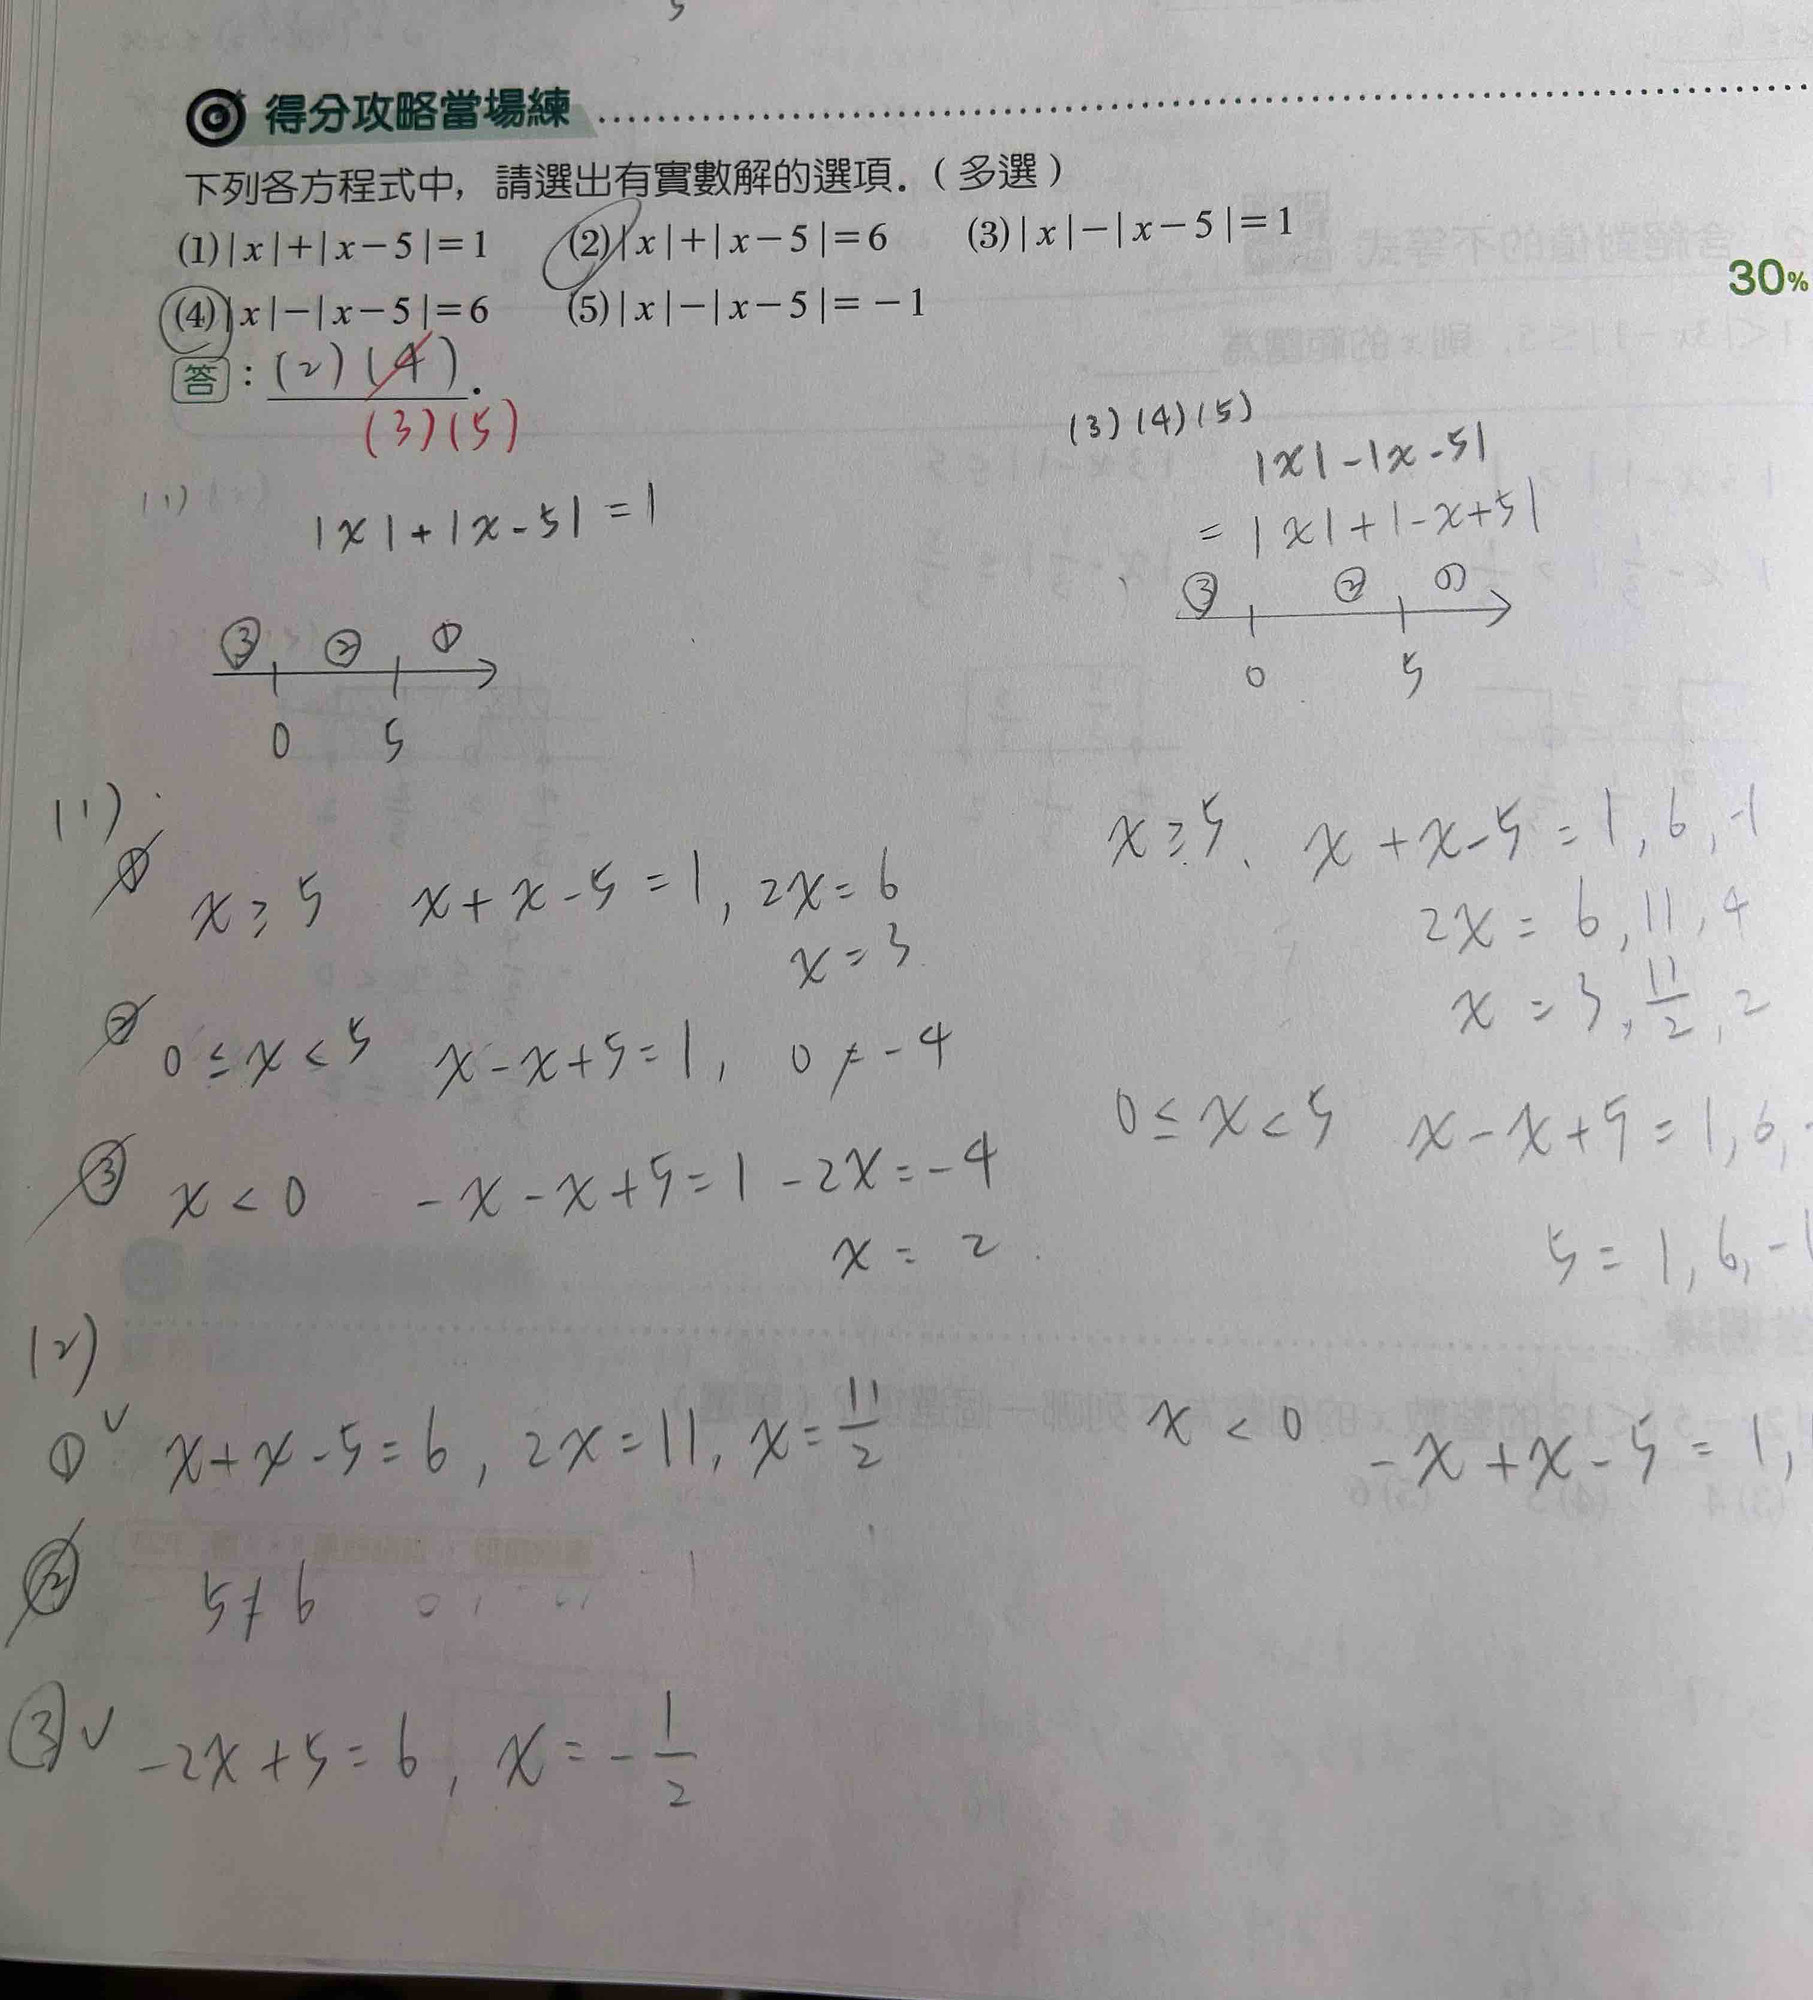 得分攻略當場練
下列各方程式中,請選出有實數解的選項.(多選)
(1)|x|+|x-5|=1 (2)|x|+|x-5|=6 (3)|x|-|x-5|=1
(4)|x|-|x-5|=6 (5)|x|-|x-5|=-1
30%
答:(2)(4).
(3)(5)
(1)
|x|+|x-5|=1
③ ② ①
0 5
(1)
① x≥5 x+x-5=1, 2x=6
x=3
② 0≤x<5 x-x+5=1, 0≠-4
③ x<0 -x-x+5=1 -2x=-4
x=2
(2)
①✓ x+x-5=6, 2x=11, x=11/2
② 5≠6
③✓ -2x+5=6, x=-1/2
(3)(4)(5)
|x|-|x-5|
=|x|+|-x+5|
③ ② ①
0 5
x≥5、 x+x-5=1,6,-1
2x=6,11,4
x=3,11/2,2
0≤x<5 x-x+5=1,6,-
5=1,6,-1
x<0 -x+x-5=1,